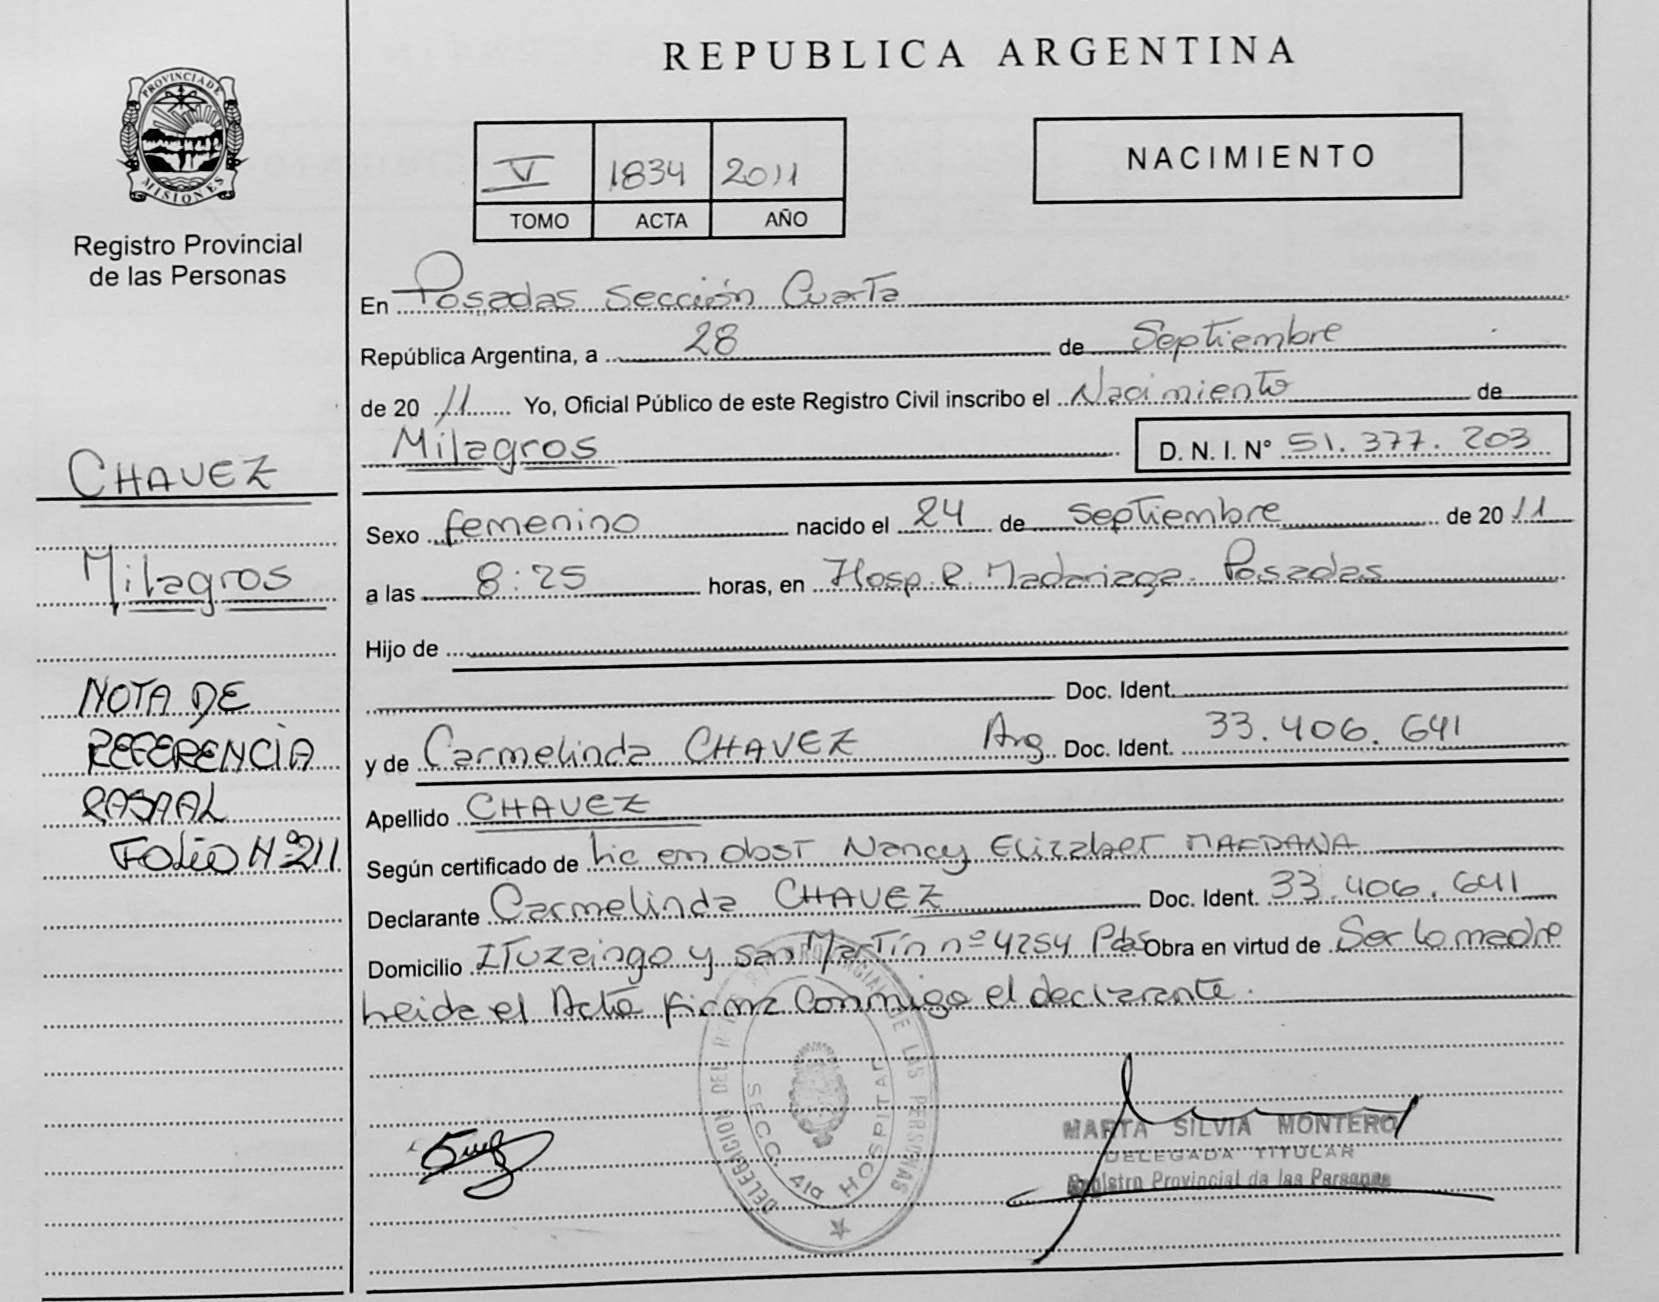 REPUBLICA ARGENTINA
PROVINCIA DE
MISIONES
Registro Provincial
de las Personas
V 1834 2011
TOMO ACTA AÑO
NACIMIENTO
En Posadas Sección Cuarta
República Argentina, a 28 de Septiembre
de 20 11 Yo, Oficial Público de este Registro Civil inscribo el Nacimiento de
Milagros D. N. I. Nº 51.377.203
Sexo femenino nacido el 24 de Septiembre de 20 11
a las 8:25 horas, en Hosp. R. Madariaga. Posadas
Hijo de
Doc. Ident.
y de Carmelinda CHAVEZ Arg. Doc. Ident. 33.406.641
Apellido CHAVEZ
Según certificado de Lic en obst Nancy Elizabet
Declarante Carmelinda CHAVEZ Doc. Ident. 33.406.641
Domicilio ITuzaingo y san Martín nº 4254 Pdas Obra en virtud de Ser la madre
Leida el Acta firma Conmigo el declarante.
CHAVEZ
Milagros
NOTA DE
REFERENCIA
FOLIO Nº 211
DELEGACION DEL REGISTRO PROVINCIAL DE LAS PERSONAS
SECC. 4ta HOSPITAL
MARTA SILVIA MONTERO
DELEGADA TITULAR
Registro Provincial de las Personas